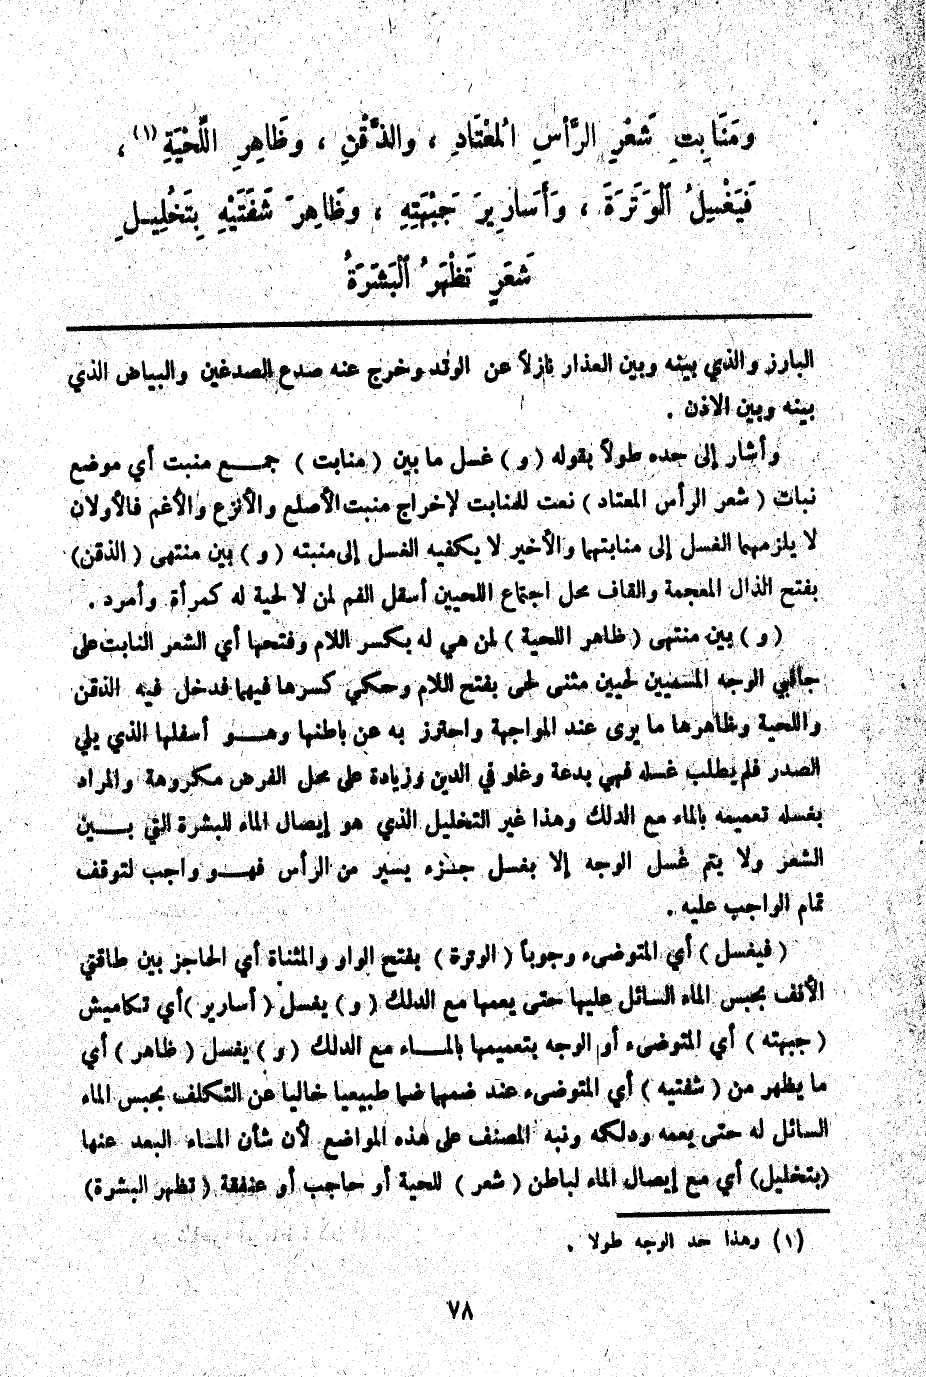 وَمَنَابِتِ شَعْرِ الرَّأسِ الْمُعْتَادِ ، والذَّقْنِ ، وَظَاهِرِ اللِّحْيَةِ (١) ،
فَيَغْسِلُ ٱلْوَتَرَةَ ، وَأَسَارِيرَ جَبْهَتِهِ ، وظَاهِرَ شَفَتَيْهِ بِتَخْلِيلِ
شَعَرٍ تَظْهَرُ ٱلْبَشَرَةُ
البارز والذي بينه وبين العذار نازلاً عن الوتد وخرج عنه صدع الصدغين والبياض الذي
بينه وبين الاذن .
وأشار إلى حده طولاً بقوله ( و ) غسل ما بين ( منابت ) جمع منبت أي موضع
نبات ( شعر الرأس المعتاد ) نعت للمنابت لإخراج منبت الأصلع والأنزع والأغم فالأولان
لا يلزمهما الغسل إلى منابتهما والأخير لا يكفيه الغسل إلى منبته ( و ) بين منتهى ( الذقن )
بفتح الذال المعجمة والقاف محل اجتماع اللحيين أسفل الفم لمن لا لحية له كمرأة وأمرد .
( و ) بين منتهى ( ظاهر اللحية ) لمن هي له بكسر اللام وفتحها أي الشعر النابت على
جانبي الوجه المسميين لحيين مثنى لحى بفتح اللام وحكي كسرها فيهما فدخل فيه الذقن
واللحية وظاهرها ما يرى عند المواجهة واحترز به عن باطنها وهو أسفلها الذي يلي
الصدر فلم يطلب غسله فهي بدعة وغلو في الدين وزيادة على محل الفرض مكروهة والمراد
بغسله تعميمه بالماء مع الدلك وهذا غير التخليل الذي هو إيصال الماء للبشرة التي بين
الشعر ولا يتم غسل الوجه إلا بغسل جزء يسير من الرأس فهو واجب لتوقف
تمام الواجب عليه .
( فيغسل ) أي المتوضىء وجوباً ( الوترة ) بفتح الواو والمثناة أي الحاجز بين طاقتي
الأنف بحبس الماء السائل عليها حتى يعمها مع الدلك ( و ) يغسل ( أسارير ) أي تكاميش
( جبهته ) أي المتوضىء أو الوجه بتعميمها بالماء مع الدلك ( و ) يغسل ( ظاهر ) أي
ما يظهر من ( شفتيه ) أي المتوضىء عند ضمهما ضما طبيعيا خاليا عن التكلف بحبس الماء
السائل له حتى يعمه ودلكه ونبه المصنف على هذه المواضع لأن شأن الماء البعد عنها
(بتخليل) أي مع إيصال الماء لباطن ( شعر ) للحية أو حاجب أو عنفقة ( تظهر البشرة)
(١) وهذا حد الوجه طولا .
٧٨